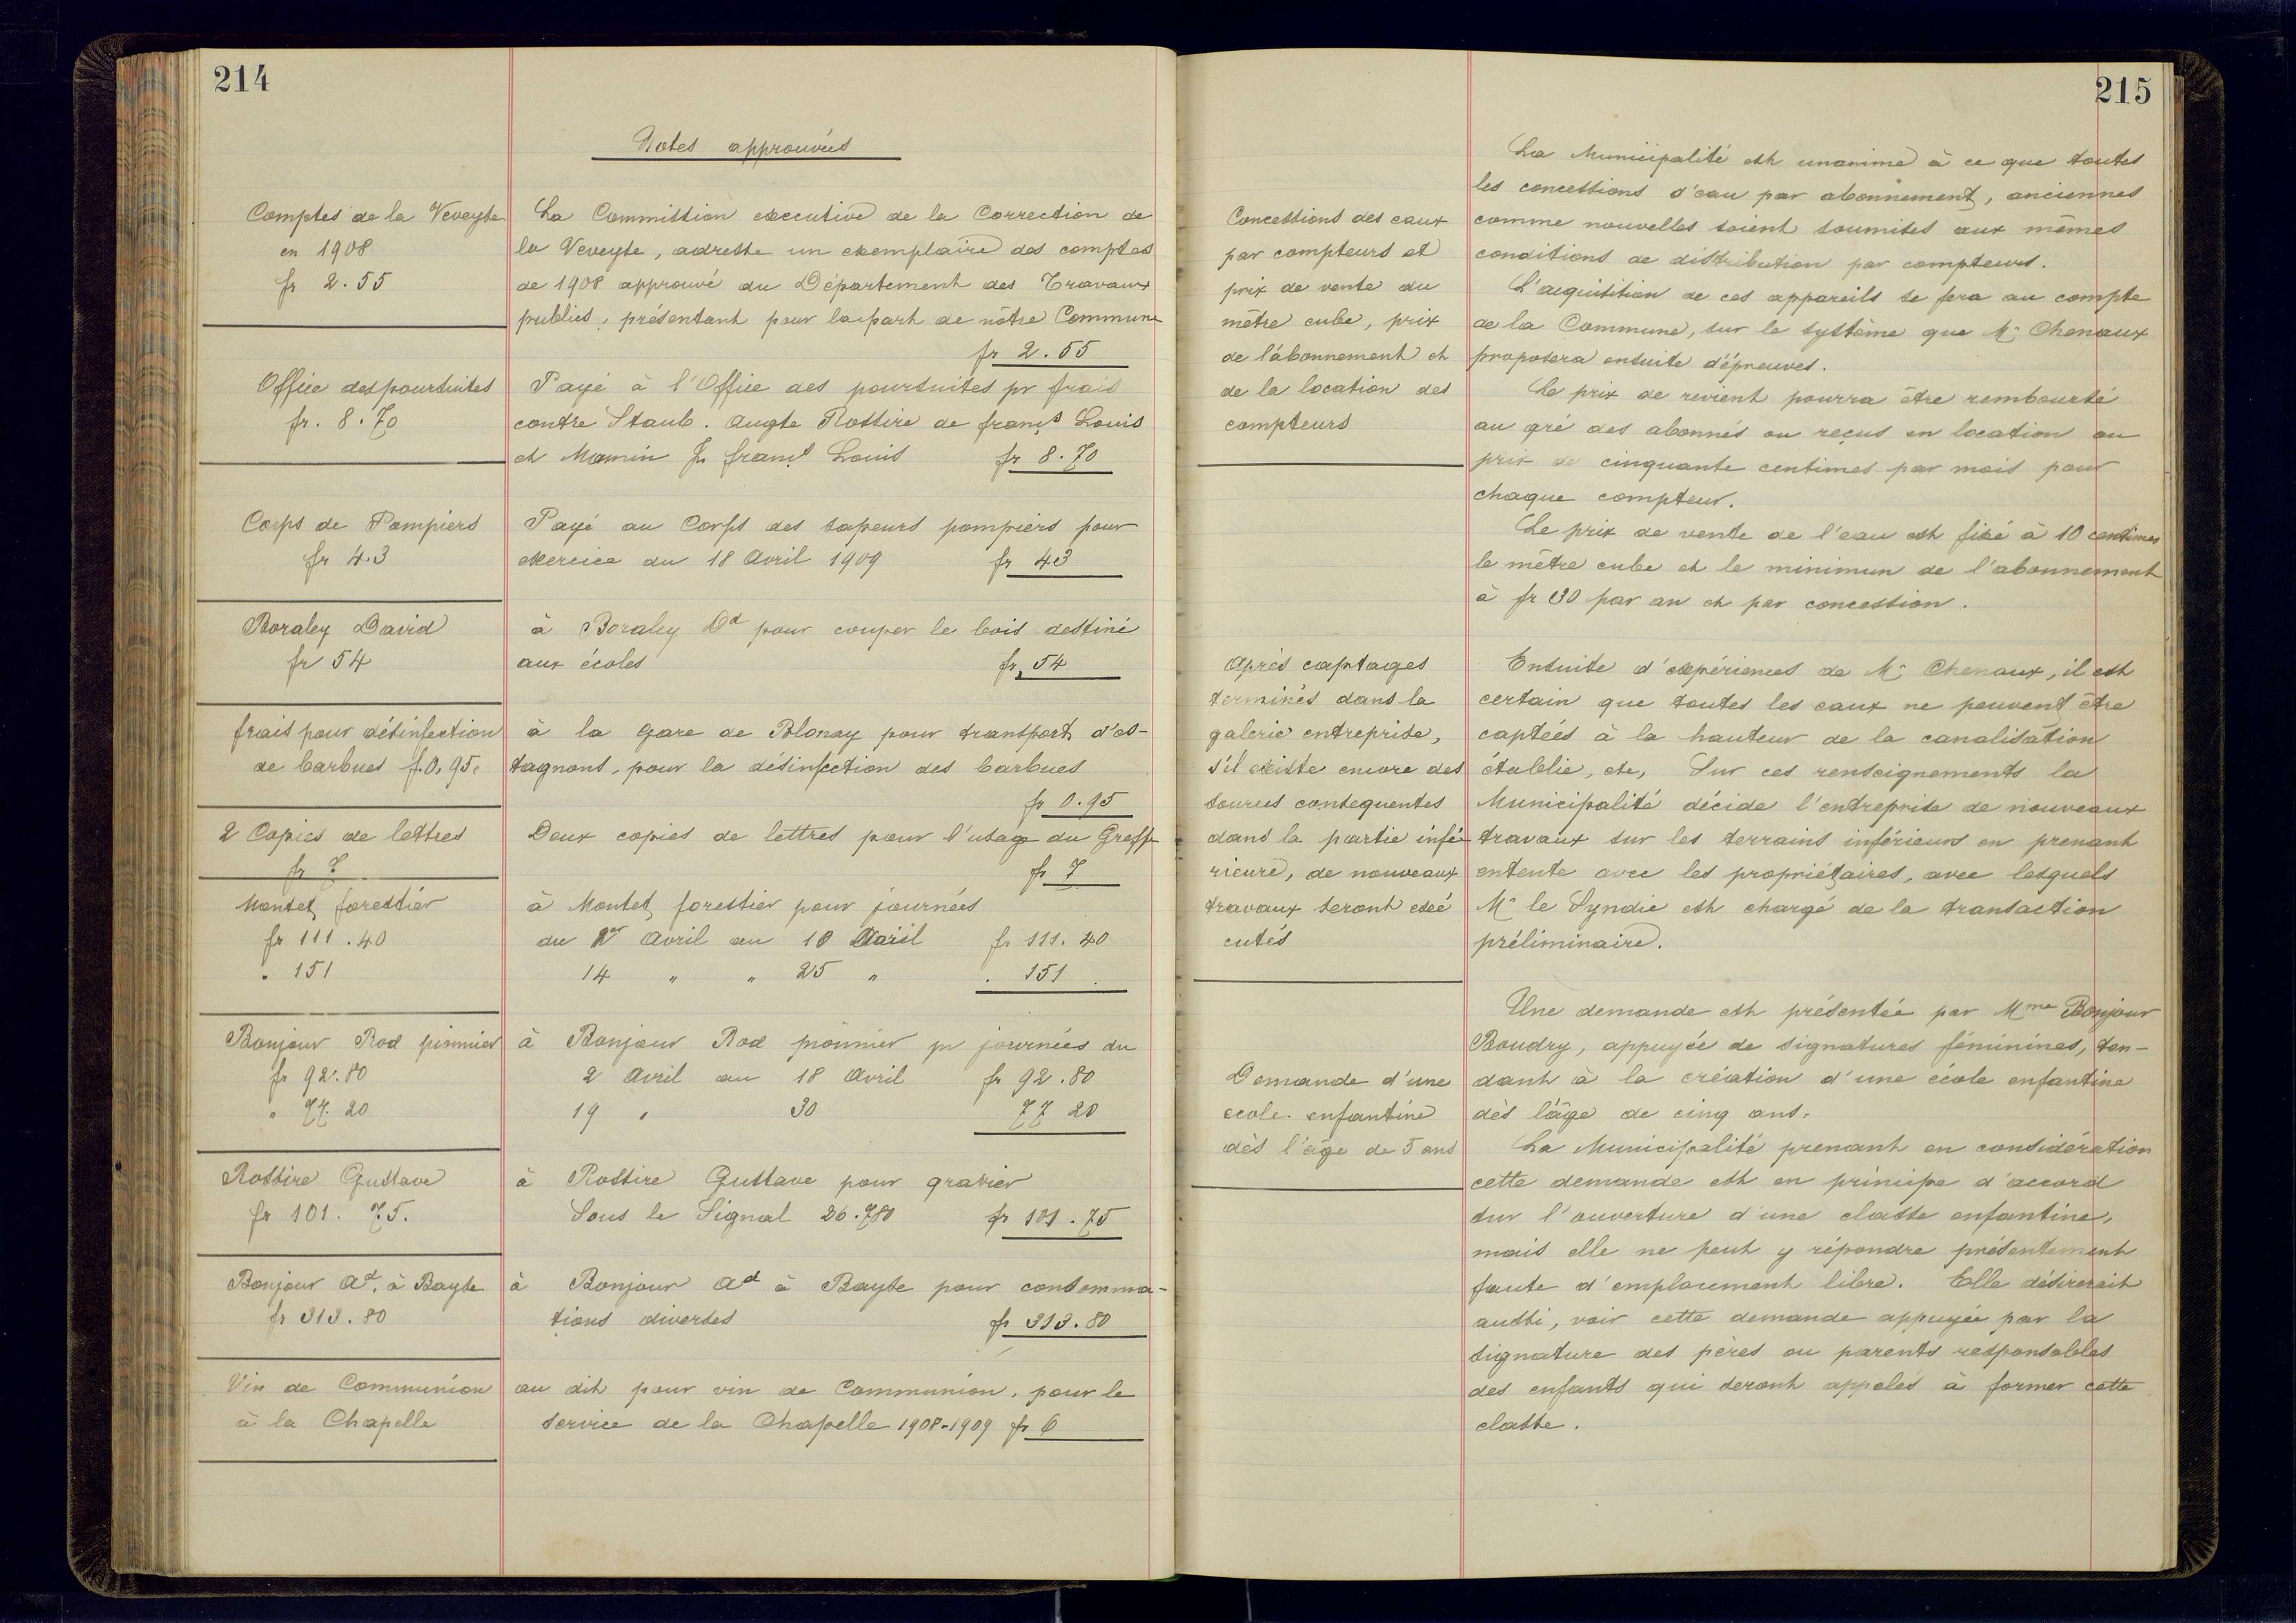 214
Notes approuvées
Comptes de la Veveyse
en 1908
fr 2.55
La Commission executive de la Correction de
la Veveyse, adresse un exemplaire des comptes
de 1908 approuvé du Département des Travaux
publics, présentant pour la part de nôtre Commune
fr 2.55
Office des poursuites
fr. 8.70
Payé à l'Office des poursuites pr frais
contre Staub. Augte Rossire de franç.s Louis
et Mamin franç.s Louis fr 8.70
Corps de Pompiers
fr 4.3
Payé au Corps des sapeurs pompiers pour
exercice du 18 Avril 1909 fr 43
Boraley David
fr 54
à Boraley Dd pour couper le bois destiné
aux écoles fr, 54
frais pour désinfection
de barbues f. 0,95.
à la Gare de Blonay pour transport d'es-
tagnons, pour la désinfection des barbues
fr 0.95
2 Copies de lettres
fr 7
Deux copies de lettres pour l'usage du Greffe
fr 7
Montet, forestier
fr 111.40
" 151
à Montet, forestier pour journées
du 1er Avril au 10 Avril fr 111.40
14 " " 25 " . 151 .
Bonjour Rod pionnier
fr 92.80
" 77.20
à Bonjour Rod pionnier pr journées du
2 Avril au 18 Avril fr 92.80
19 " 30 77 20
Rossire Gustave
fr 101. 75.
à Rossire Gustave pour gravier
Sous le Signal 26.780 fr 101.75
Bonjour Ad. à Bayse
fr 313.80
à Bonjour Ad à Bayse pour consomma-
tions diverses fr 313.80
Vin de Communion
à la Chapelle
au dit pour vin de Communion, pour le
service de la Chapelle 1908-1909 fr 6
215
Concessions des eaux
par compteurs et
prix de vente du
mètre cube, prix
de l'abonnement et
de la location des
compteurs
La Municipalité est unanime à ce que toutes
les concessions d'eau par abonnement, anciennes
comme nouvelles soient soumises aux mêmes
conditions de distribution par compteurs.
L'acquisition de ces appareils se fera au compte
de la Commune, sur le système que Mr Chenaux
proposera ensuite d'épreuves.
Le prix de revient pourra être remboursé
au gré des abonnés ou reçus en location au
prix de cinquante centimes par mois pour
chaque compteur.
Le prix de vente de l'eau est fixé à 10 centimes
le mètre cube et le minimun de l'abonnement
à fr 30 par an et par concession.
Après captages
terminés dans la
galerie entreprise,
s'il existe encore des
sources consequentes
dans la partie infé
rieure, de nouveaux
travaux seront exé
cutés
Ensuite d'expériences de Mr Chenaux, il est
certain que toutes les eaux ne peuvent être
captées à la hauteur de la canalisation
établie, etc, Sur ces renseignements la
Municipalité décide l'entreprise de nouveaux
travaux sur les terrains inférieurs en prenant
entente avec les propriétaires, avec lesquels
Mr le Syndic est chargé de la transaction
préliminaire.
Demande d'une
ecole enfantine
dès l'âge de 5 ans
Une demande est présentée par Mme Bonjour
Boudry, appuyée de signatures féminines, ten-
dant à la création d'une école enfantine
dès l'âge de cinq ans.
La Municipalité prenant en considération
cette demande est en principe d'accord
sur l'ouverture d'une classe enfantine,
mais elle ne peut y répondre présentement
faute d'emplacement libre. Elle désirerait
aussi, voir cette demande appuyée par la
signature des pères ou parents responsables
des enfants qui seront appelés à former cette
classe.